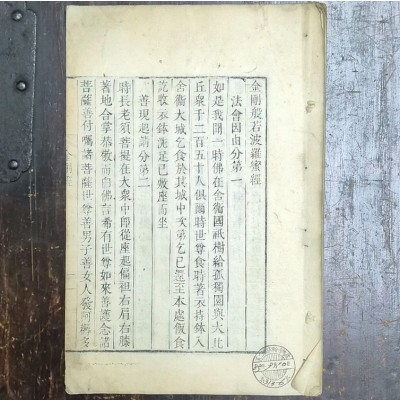 金剛般若波羅蜜經
法會因由分第一
如是我聞一時佛在舍衛國祇樹給孤獨園與大比
丘眾千二百五十人俱爾時世尊食時著衣持鉢入
舍衛大城乞食於其城中次第乞已還至本處飯食
訖收衣鉢洗足已敷座而坐
善現起請分第二
時長老須菩提在大眾中即從座起偏袒右肩右膝
著地合掌恭敬而白佛言希有世尊如來善護念諸
菩薩善付囑諸菩薩世尊善男子善女人發阿耨多